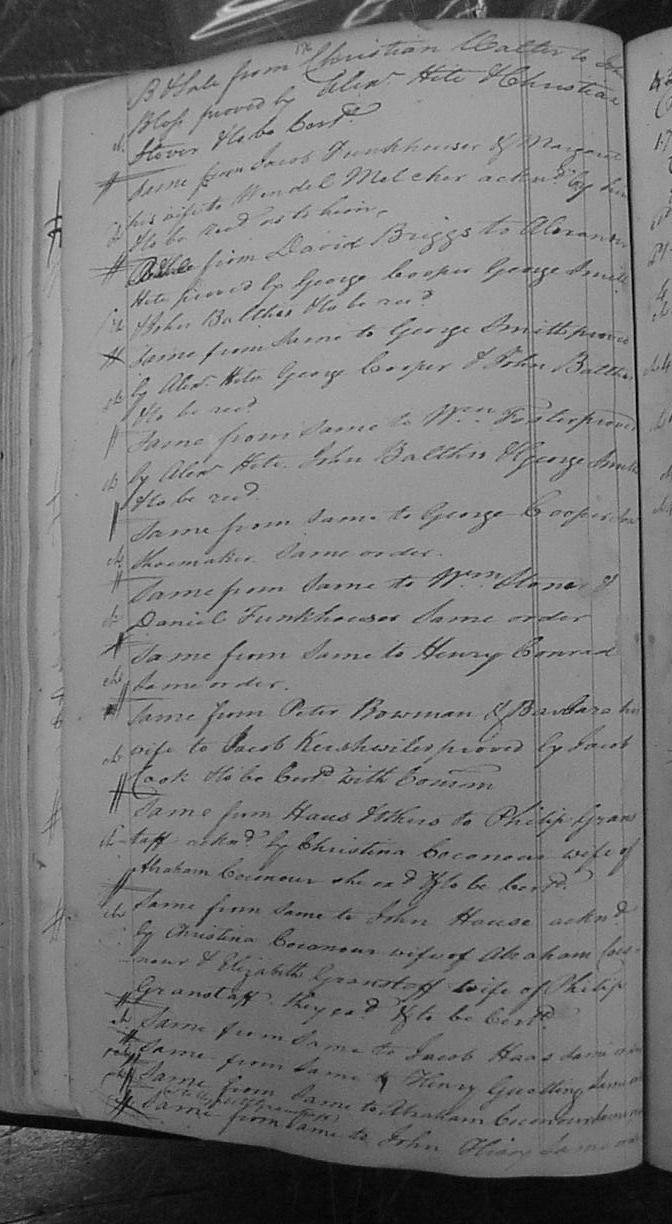 B & Sale from Christian Walter to
Bloss proved by Alexr Hite & Christian
Stover & to be Certd
Same from Jacob Funkhouser & Margaret
his wife to Wendel Melcher acknd by
& to be recd as to him
from David Briggs to Alexander
Hite proved by George Cooper George Smith
& John Balthis & to be recd
Same from Same to George Smith proved
by Alexr Hite George Cooper & John Balthis
& to be recd
Same from Same to Wm Foster proved
by Alexr Hite John Balthis & George Smith
& to be recd.
Same from Same to George Cooper
Shoemaker Same order.
Same from Same to Wm Stoner &
Daniel Funkhouser Same order
Same from Same to Henry Conrad
Same order.
Same from Peter Bowman & Barbara his
wife to Jacob Kershwiler proved by Jacob
Cook & to be Certd with Comm
Same from Haus & others to Philip Grans
taff acknd by Christina Coconour wife of
Abraham Coconour she exd & to be Certd.
Same from Same to John House acknd
by Christina Coconour wife of Abraham Coco-
nour & Elizabeth Granstaff wife of Philip
Granstaff they exd & to be Certd
Same from Same to Jacob Haas Same
Same from Same Henry Same
Same from Same to Abraham Coconour Same
Same from Same to John Same